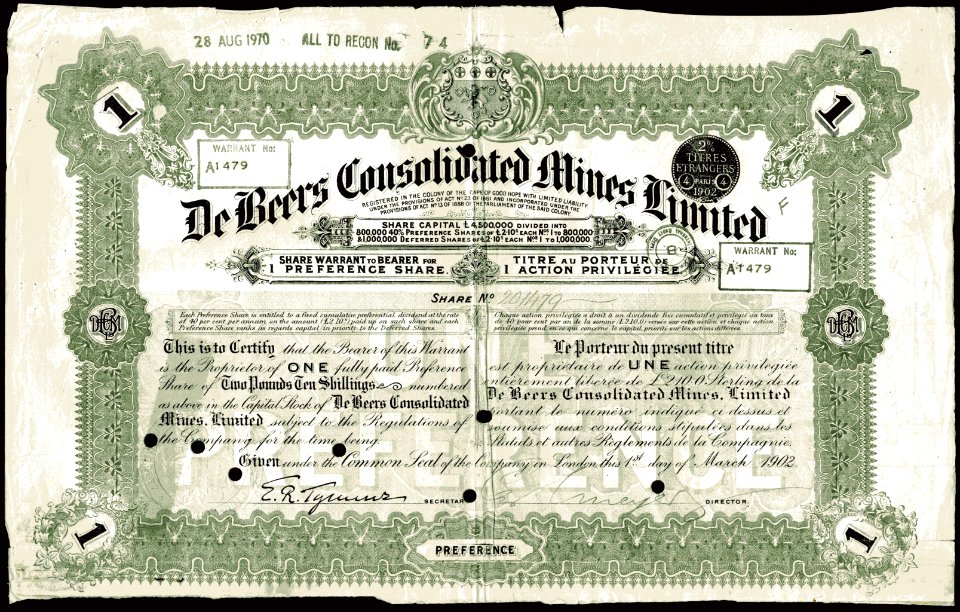 28 AUG 1970 ALL TO RECON No. 74
1
1
WARRANT No:
A1479
2%
TITRES
ETRANGERS
4 PARIS 4
1902
De Beers Consolidated Mines Limited
REGISTERED IN THE COLONY OF THE CAPE OF GOOD HOPE WITH LIMITED LIABILITY
UNDER THE PROVISIONS OF ACT No 23 OF 1861 AND INCORPORATED UNDER THE
PROVISIONS OF ACT No 13 OF 1888 OF THE PARLIAMENT OF THE SAID COLONY.
F
SHARE CAPITAL £4,500,000 DIVIDED INTO
800,000 40% PREFERENCE SHARES OF £2·10s EACH Nos 1 TO 800,000
& 1,000,000 DEFERRED SHARES OF £2·10s EACH Nos 1 TO 1,000,000.
WARRANT No:
A1479
SHARE WARRANT TO BEARER FOR
1 PREFERENCE SHARE.
TITRE AU PORTEUR DE
1 ACTION PRIVILÉGIÉE
SHARE No
Each Preference Share is entitled to a fixed cumulative preferential dividend at the rate
of 40 per cent per annum on the amount (£2.10s) paid up on such share and each
Preference Share ranks as regards capital in priority to the Deferred Shares.
Chaque action privilégiée a droit à un dividende fixe cumulatif et privilégié au taux
de 40 pour cent par an de la somme £2.10.0 versée sur cette action et chaque action
privilégiée prend, en ce qui concerne le capital, priorité sur les actions différées.
This is to Certify that the Bearer of this Warrant
is the Proprietor of ONE fully paid Preference
Share of Two Pounds Ten Shillings numbered
as above in the Capital Stock of De Beers Consolidated
Mines, Limited subject to the Regulations of
the Company for the time being.
Le Porteur du present titre
est propriétaire de UNE action privilégiée
entièrement libérée de £2.10.0. Sterling de la
De Beers Consolidated Mines, Limited
portant le numéro indiqué ci dessus et
soumise aux conditions stipulées dans les
Statuts et autres Règlements de la Compagnie.
PREFERENCE
Given under the Common Seal of the Company in London this 1st day of March 1902.
SECRETARY
DIRECTOR.
1
PREFERENCE
1